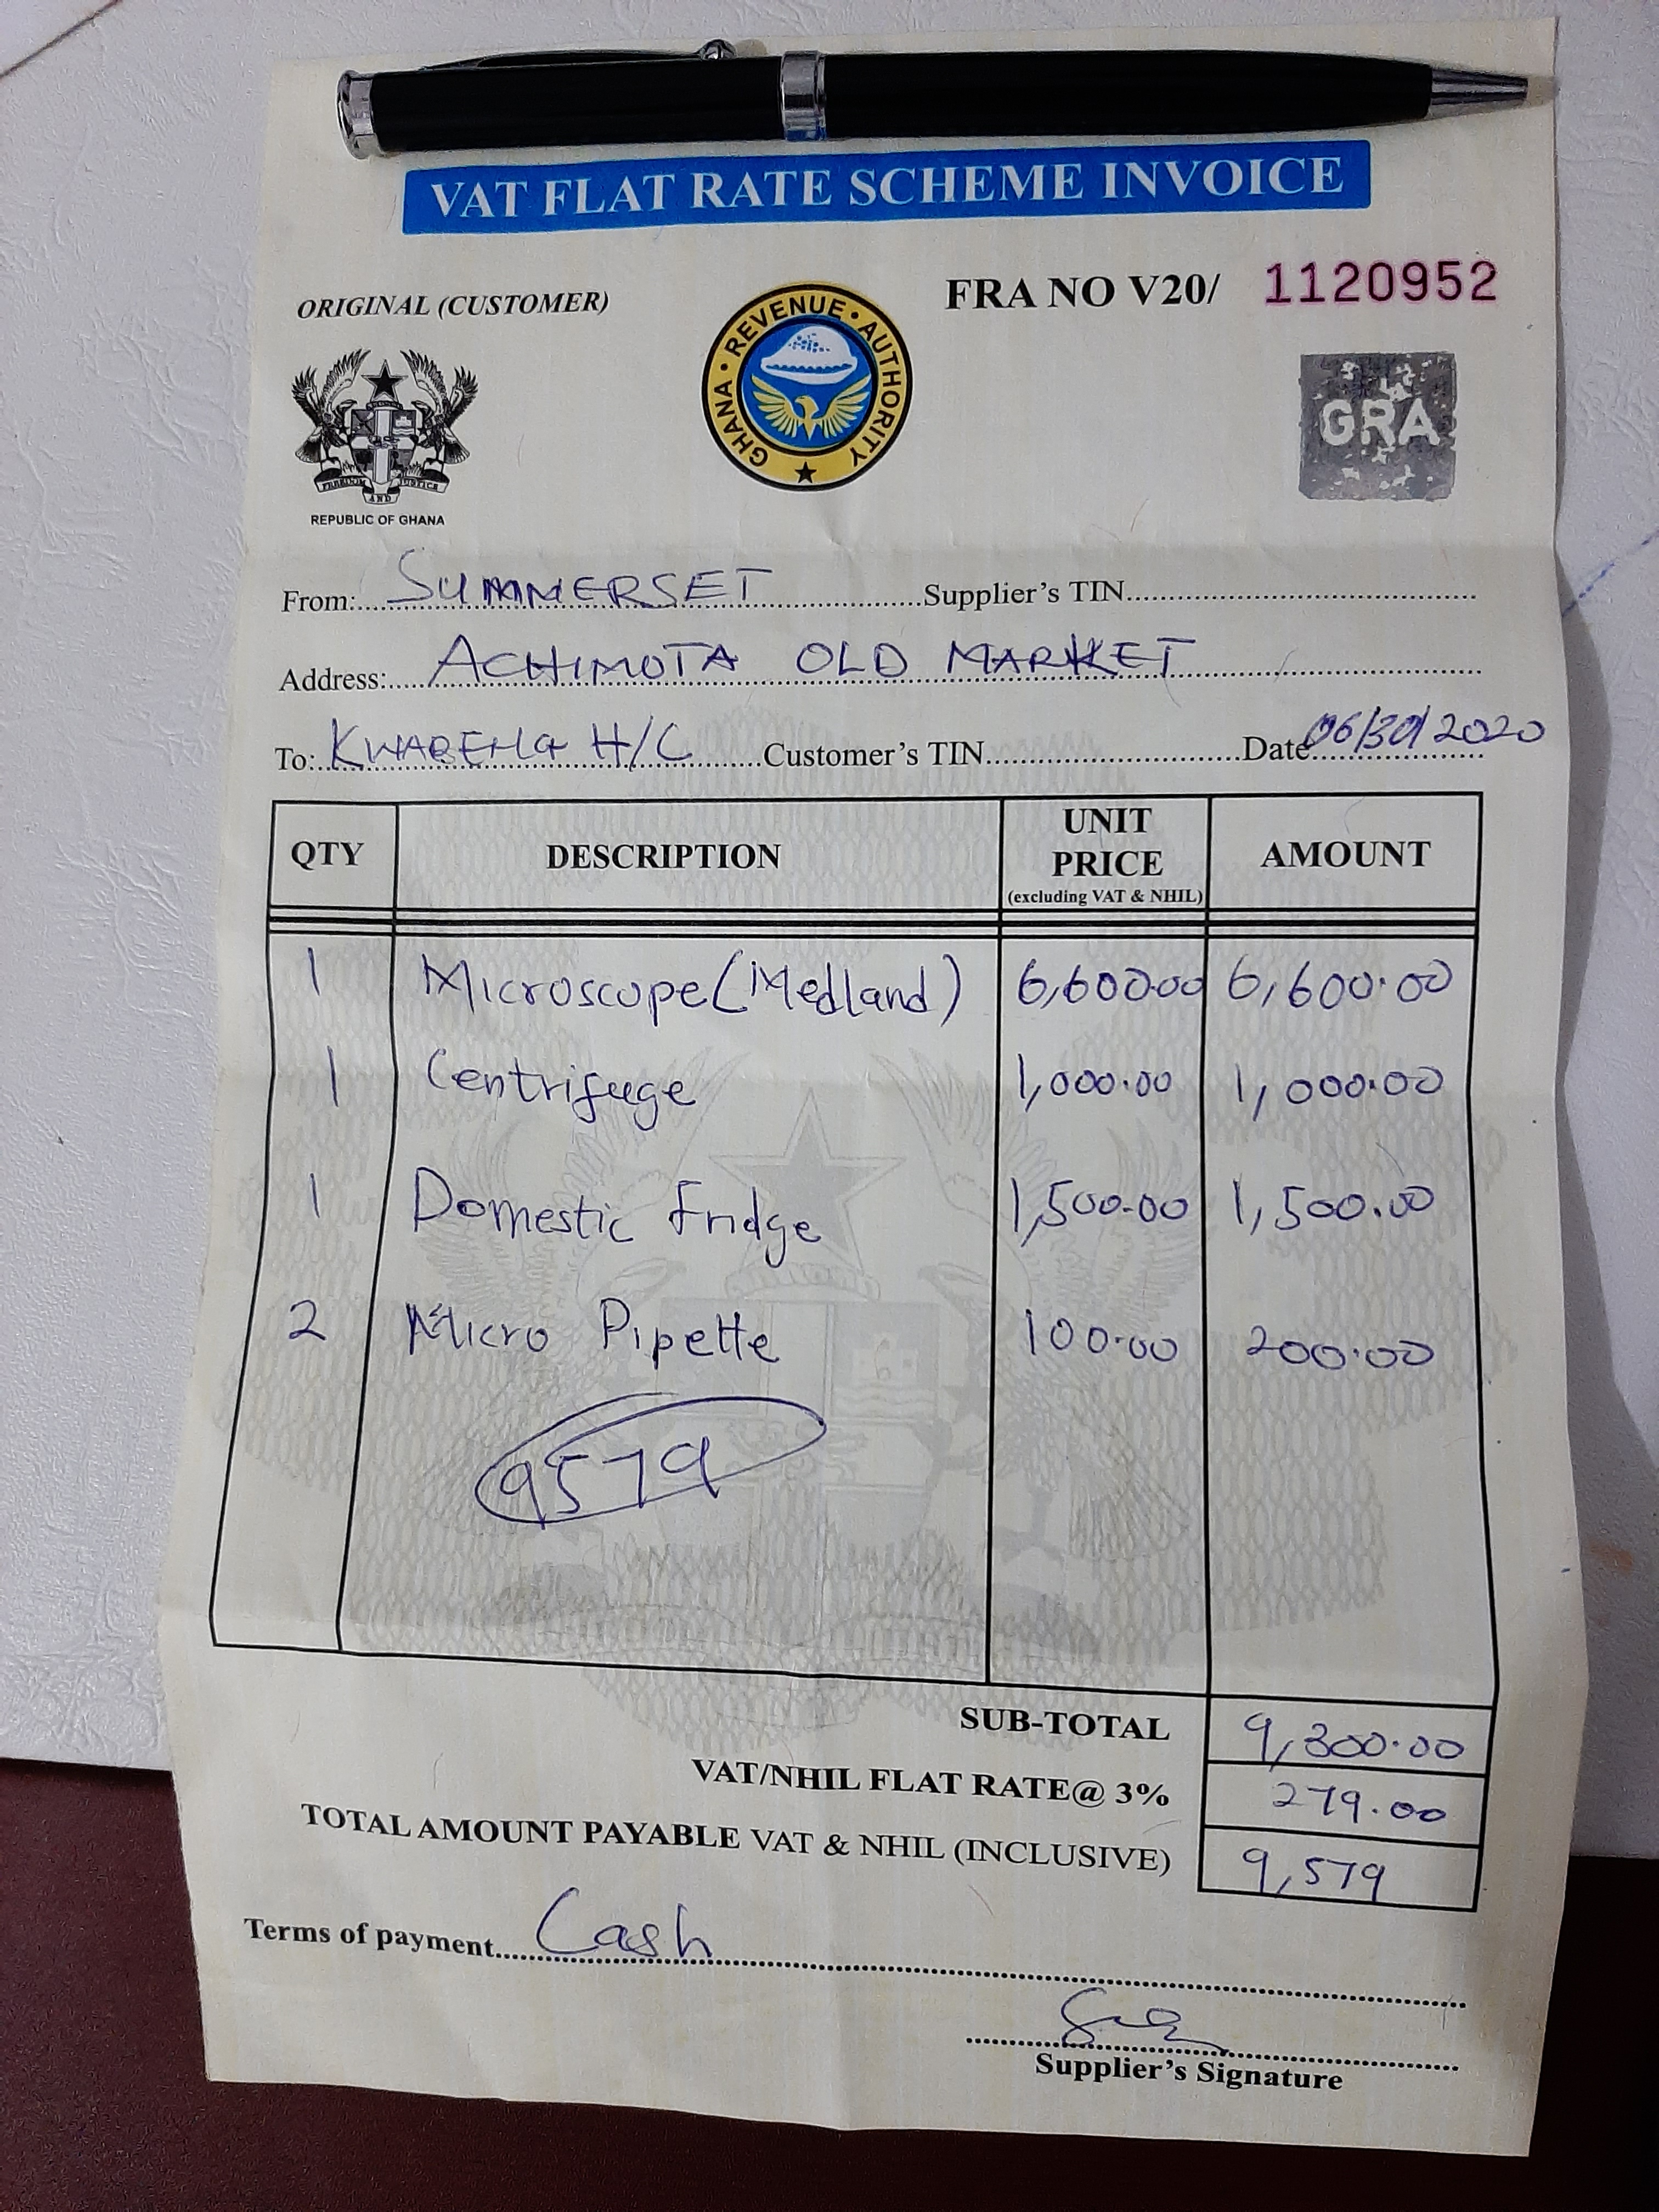 VAT FLAT RATE SCHEME INVOICE
ORIGINAL (CUSTOMER)
FRA NO V20/ 1120952
GHANA • REVENUE • AUTHORITY
GRA
FREEDOM AND JUSTICE
REPUBLIC OF GHANA
From: SUMMERSET Supplier's TIN
Address: ACHIMOTA OLD MARKET
To: KWABENG H/C Customer's TIN Date 06/30/2020
QTY DESCRIPTION UNIT PRICE (excluding VAT & NHIL) AMOUNT
1 Microscope (Medland) 6,600.00 6,600.00
1 Centrifuge 1,000.00 1,000.00
1 Domestic Fridge 1,500.00 1,500.00
2 Micro Pipette 100.00 200.00
9579
SUB-TOTAL 9,300.00
VAT/NHIL FLAT RATE@ 3% 279.00
TOTAL AMOUNT PAYABLE VAT & NHIL (INCLUSIVE) 9,579
Terms of payment Cash
Supplier's Signature